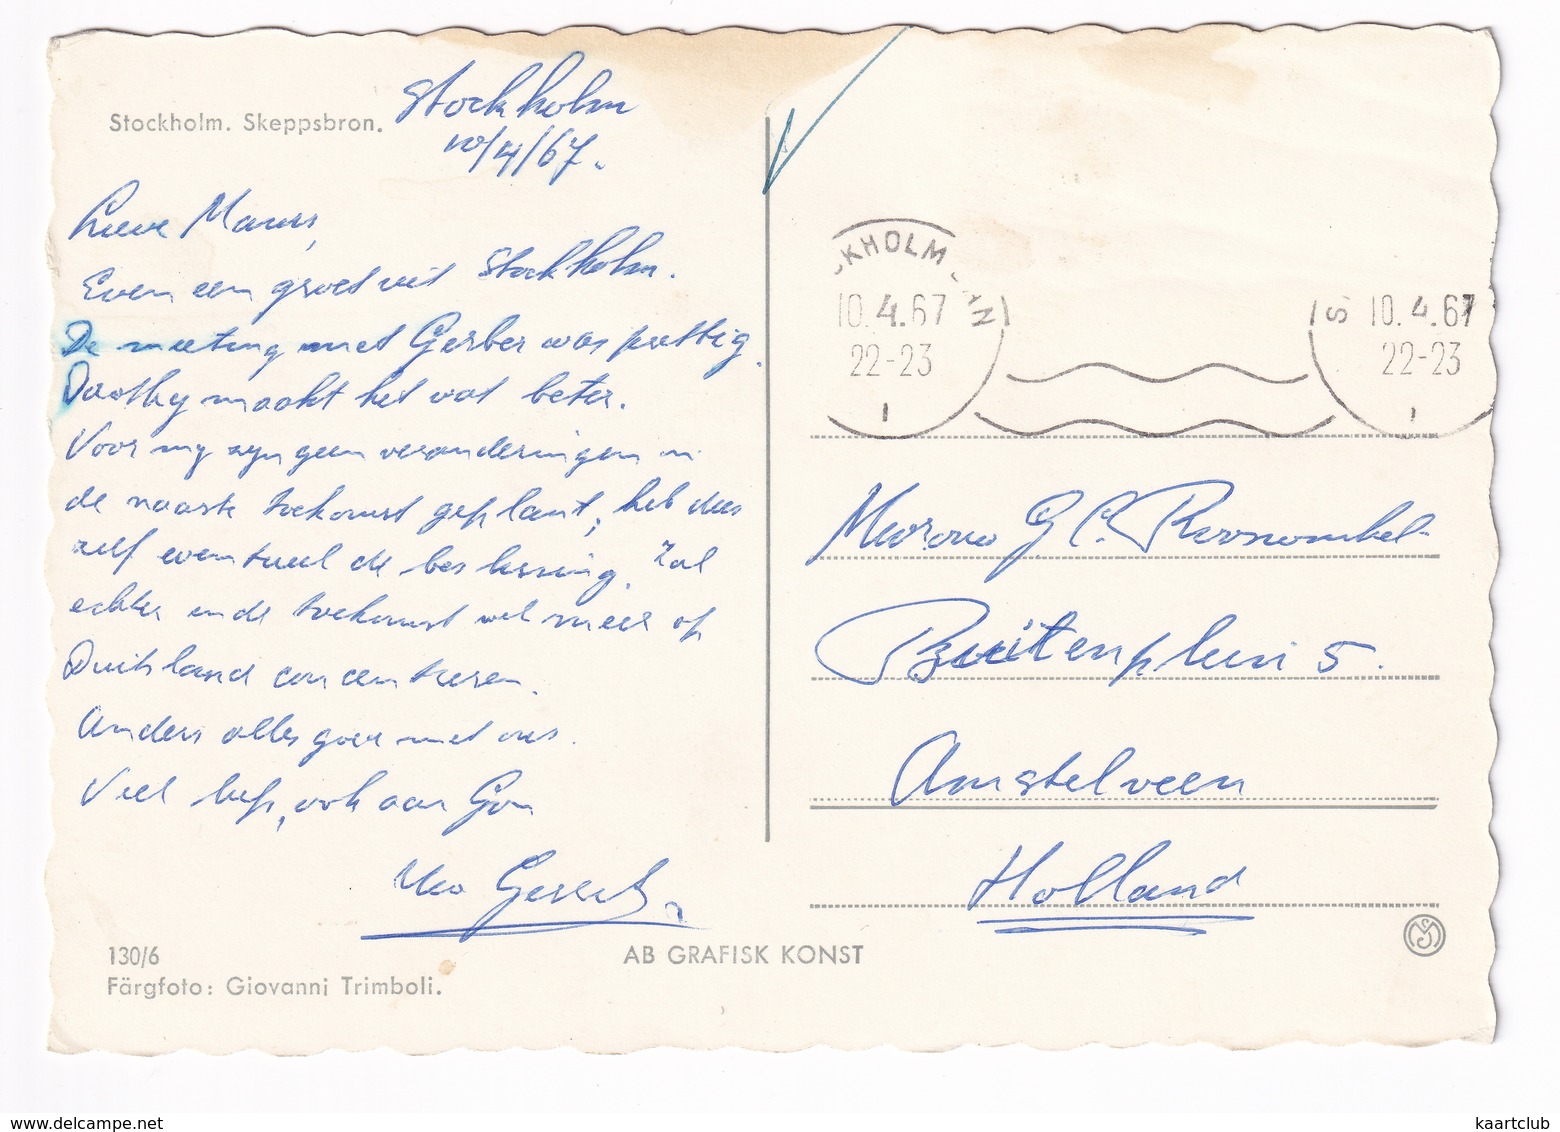 Stockholm. Skeppsbron.
Stockholm
10/4/67.
Lieve Maurs,
Even een groet uit Stockholm.
De meeting met Gerber was prettig.
Doothy maakt het wat beter.
Voor mij zijn geen veranderingen in
de naaste toekomst geplant, heb dus
zelf eventueel de beslissing. Zal
echter in de toekomst wel meer op
Duitsland concentreren.
Anders alles goed met ons.
Veel liefs, ook aan Gon
KHOLM
10.4.67
22-23
1
S
10.4.67
22-23
1
G C.
Buitenplein 5.
Amstelveen
Holland
130/6
AB GRAFISK KONST
Färgfoto: Giovanni Trimboli.
kaartclub